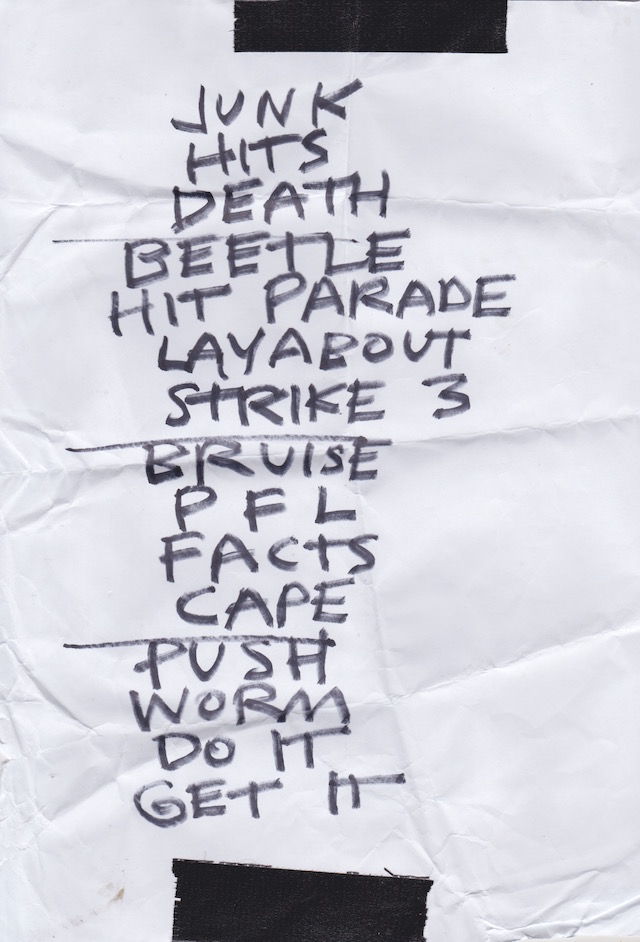 JUNK
HITS
DEATH
BEETLE
HIT PARADE
LAYABOUT
STRIKE 3
BRUISE
P F L
FACTS
CAPE
PUSH
WORM
DO IT
GET IT